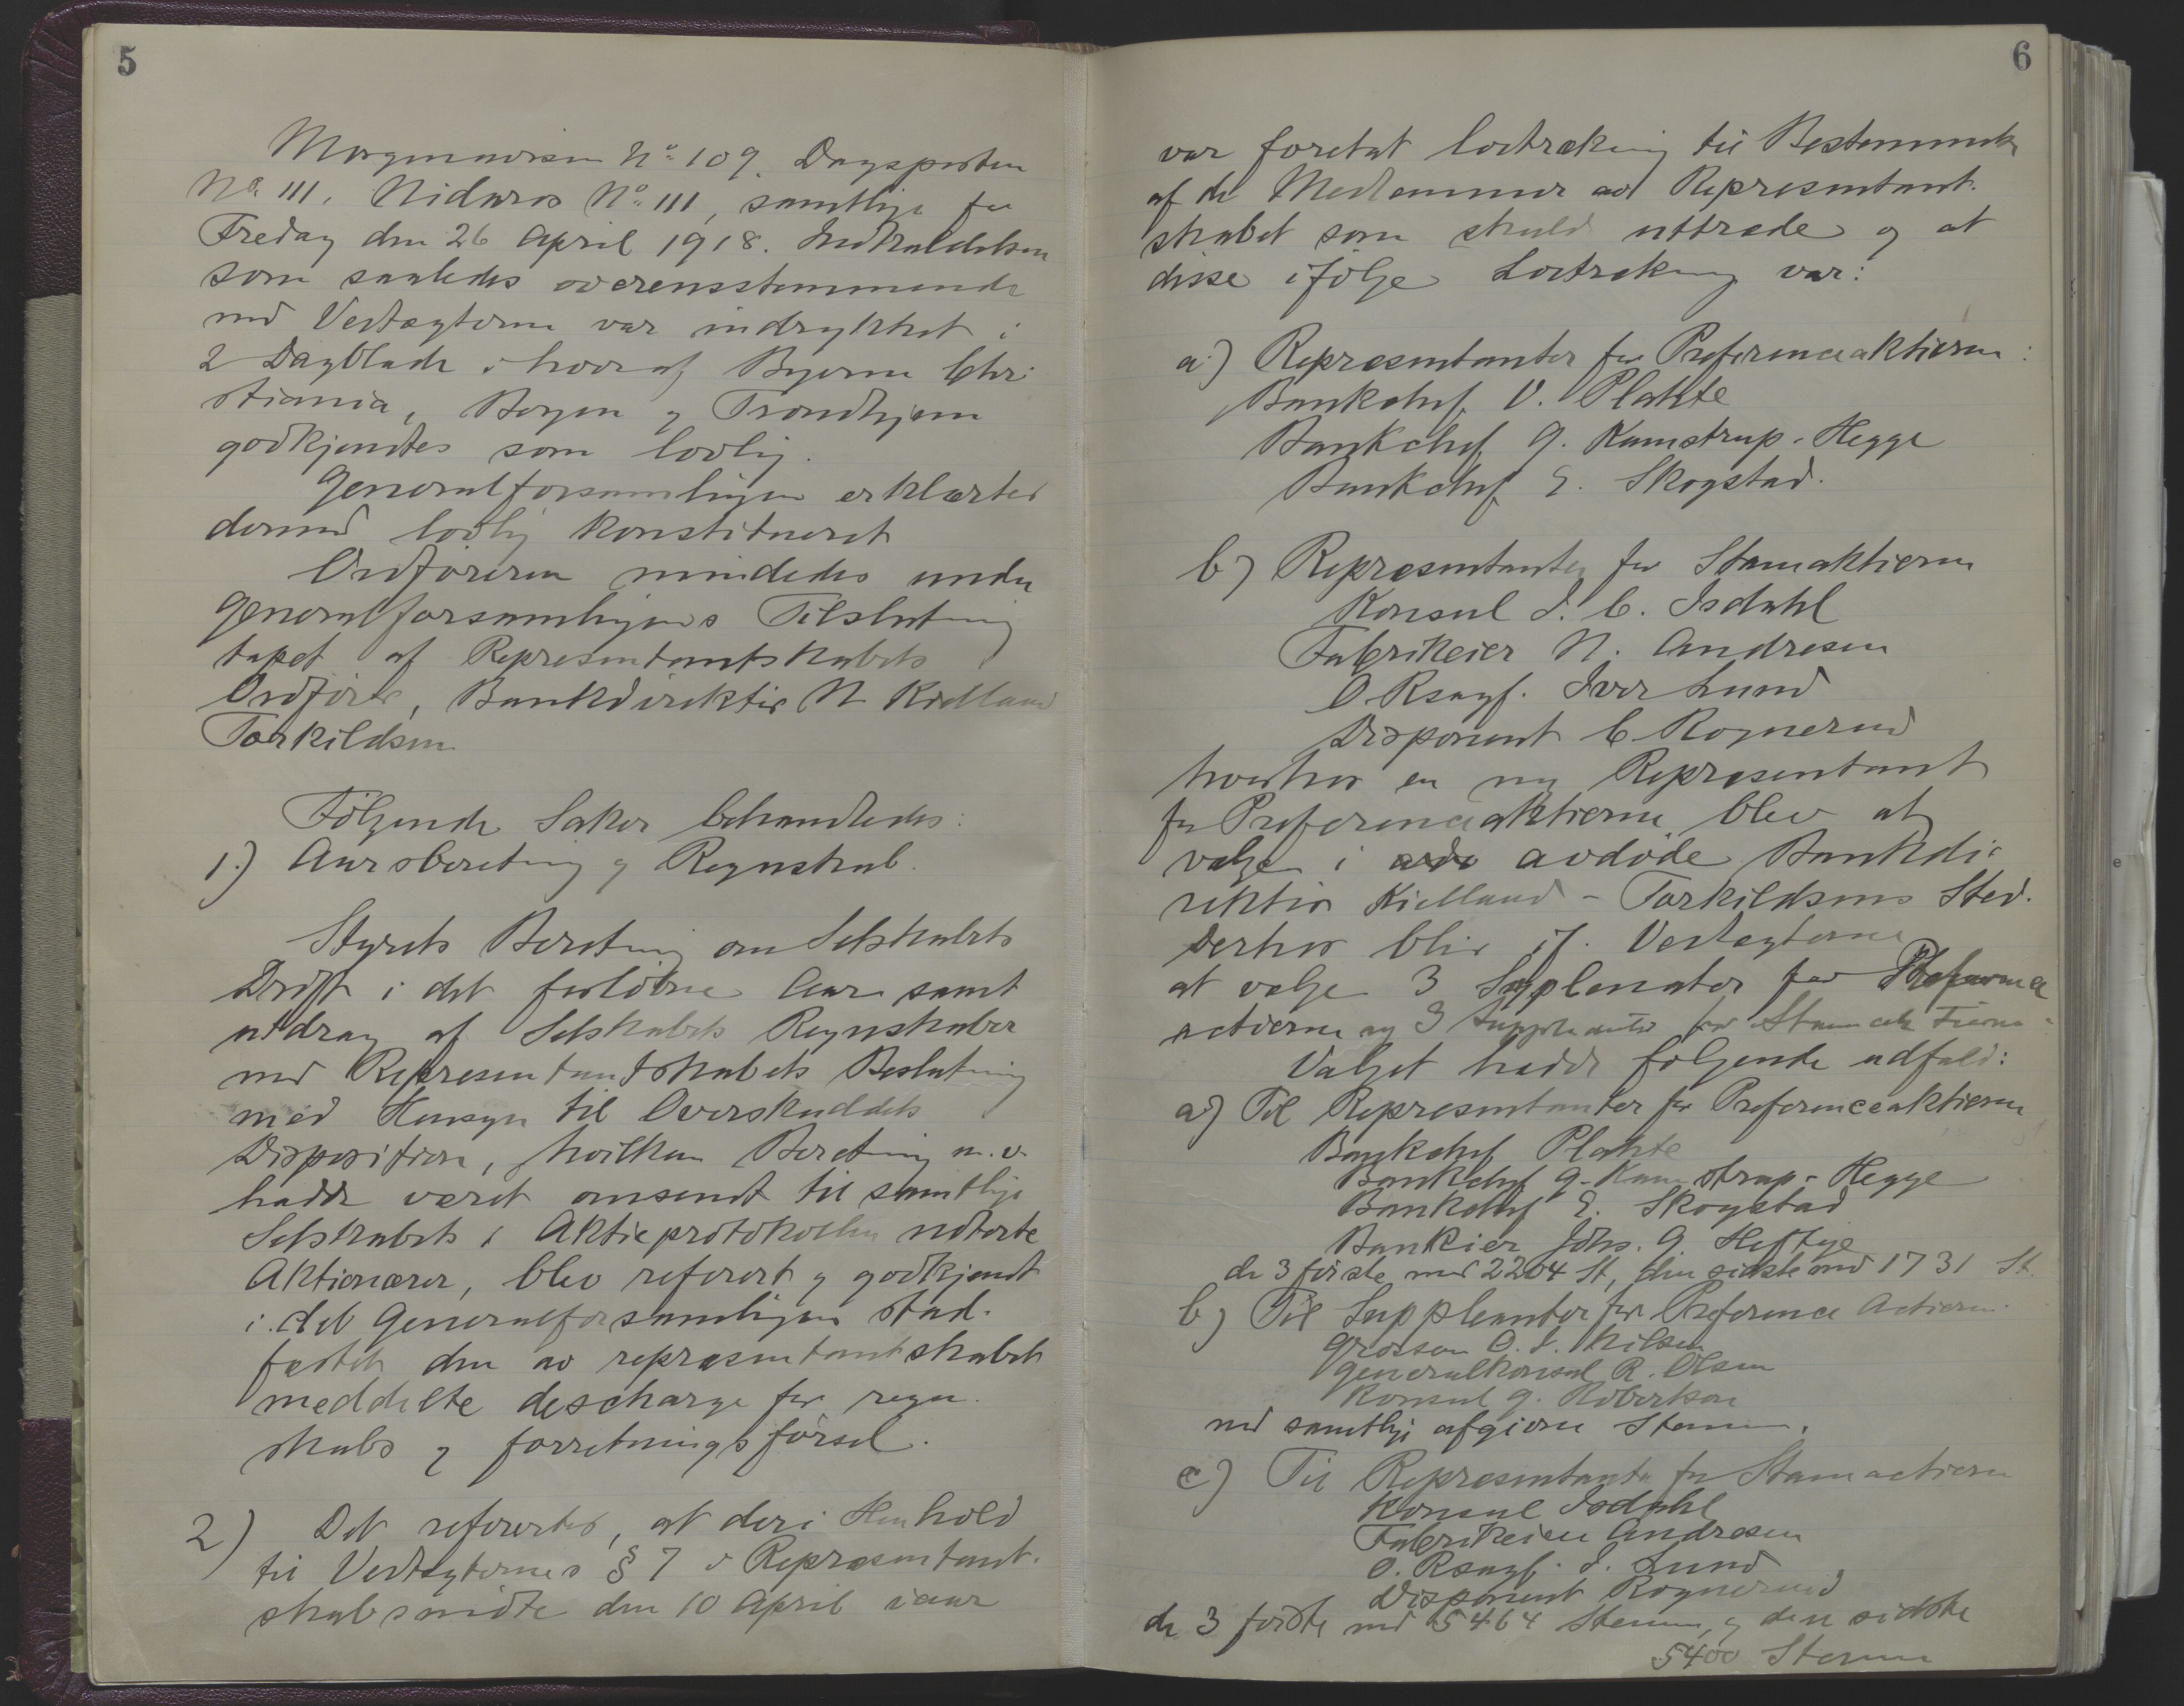 5
Morgenavisen No 109. Dagsposten
No 111, Nidaros No 111, samtlige for
Fredag den 26 April 1918. Indkaldelsen
som saaledes overensstemmende
med Vedtægterne var indrykket i
2 Dagblade i hver af Byerne Chri-
stiania, Bergen og Trondhjem
godkjendtes som lovlig.
Generalforsamlingen erklærtes
dermed lovlig konstitueret
Ordføreren mindedes under
Generalforsamlingens Tilslutning
tapet af Representantskabets
Ordfører, Bankdirektør N Kielland
Torkildsen
Følgende Saker behandledes:
1.) Aarsberetning og Regnskab.
Styrets Beretning om Selskabets
Drift i det forløbne Aar samt
utdrag af Selskabets Regnskaber
med Representantskabets Beslutning
med Hensyn til Overskuddets
Disposition, hvilken Beretning m.v.
hadde været omsendt til samtlige
Selskabets i Aktieprotokollen noterte
Aktionærer, blev referert og godkjendt
i det Generalforsamlingen stad-
fæstet den av repræsentantskabet
meddelte descharge for regn-
skabs og forretningsførsel.
2) Det refertes, at der i Henhold
til Vedtægternes § 7 i Repræsentant-
skabsmøte den 10 April iaar
6
var foretat lodtrækning til Bestemmelse
af de Medlemmer av Repræsentant-
skabet som skulde uttræde og at
disse ifølge Lodtrækning var:
a) Repræsentanter for Præferenceaktierne:
Bankchef V. Plahte
Bankchef G. Kamstrup-Hegge
Bankchef E. Skogstad.
b) Repræsentanter for Stamaktierne
Konsul J. C. Isdahl
Fabrikeier N. Andresen
O.Rsagf. Iver Lund
Disponent C Rognerud
hvorhos en ny Repræsentant
for Præferenceaktierne blev at
vælge i avdøde Bankdi-
rektør Kielland-Torkildsens Sted.
Derhos blir if. Vedtægterne
at vælge 3 Supleanter for Præference
actierne og 3 Suppleanter for Stamaktierne.
Valget hadde følgende udfald:
a) Til Repræsentanter for Præferenceaktierne
Bankchef Plahte
Bankchef G. Kamstrup-Hegge
Bankchef E. Skogstad
Bankier Johs. G. Heftye
de 3 første med 2204 St, den sidste med 1731 St.
b) Til Suppleanter for Præference Actierne.
Grosserer O. J. Nilsen
Generalkonsul R. Olsen
Konsul G. Robertson
med samtlige afgivne Stemmer.
c) Til Repræsentanter for Stamactierne
Konsul Isdahl
Fabrikeier Andresen
O. Rsagf. I. Lund
Disponent Rognerud
de 3 første med 5464 Stemmer, og den sidste
5400 Stemmer